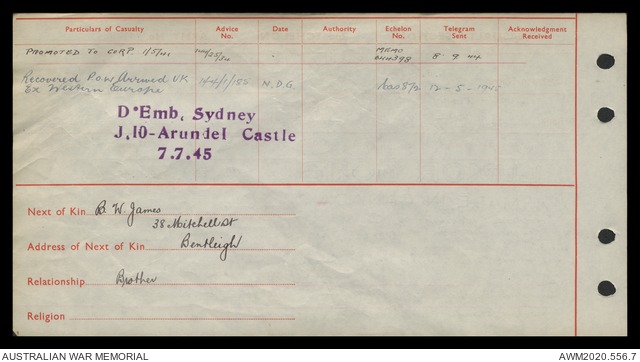 Particulars of Casualty Advice No. Date Authority Echelon No. Telegram Sent Acknowledgment Received
PROMOTED TO CORP. 1/5/41 - MEMO 8 · 9 · 44
Recovered P.O.W. Arrived UK N.D.G. 12 - 5 - 1945
Ex Western Europe
D'Emb, Sydney
J.10-Arundel Castle
7.7.45
Next of Kin B. W. James
38 Mitchell St
Address of Next of Kin Bentleigh
Relationship Brother
Religion
AUSTRALIAN WAR MEMORIAL AWM2020.556.7